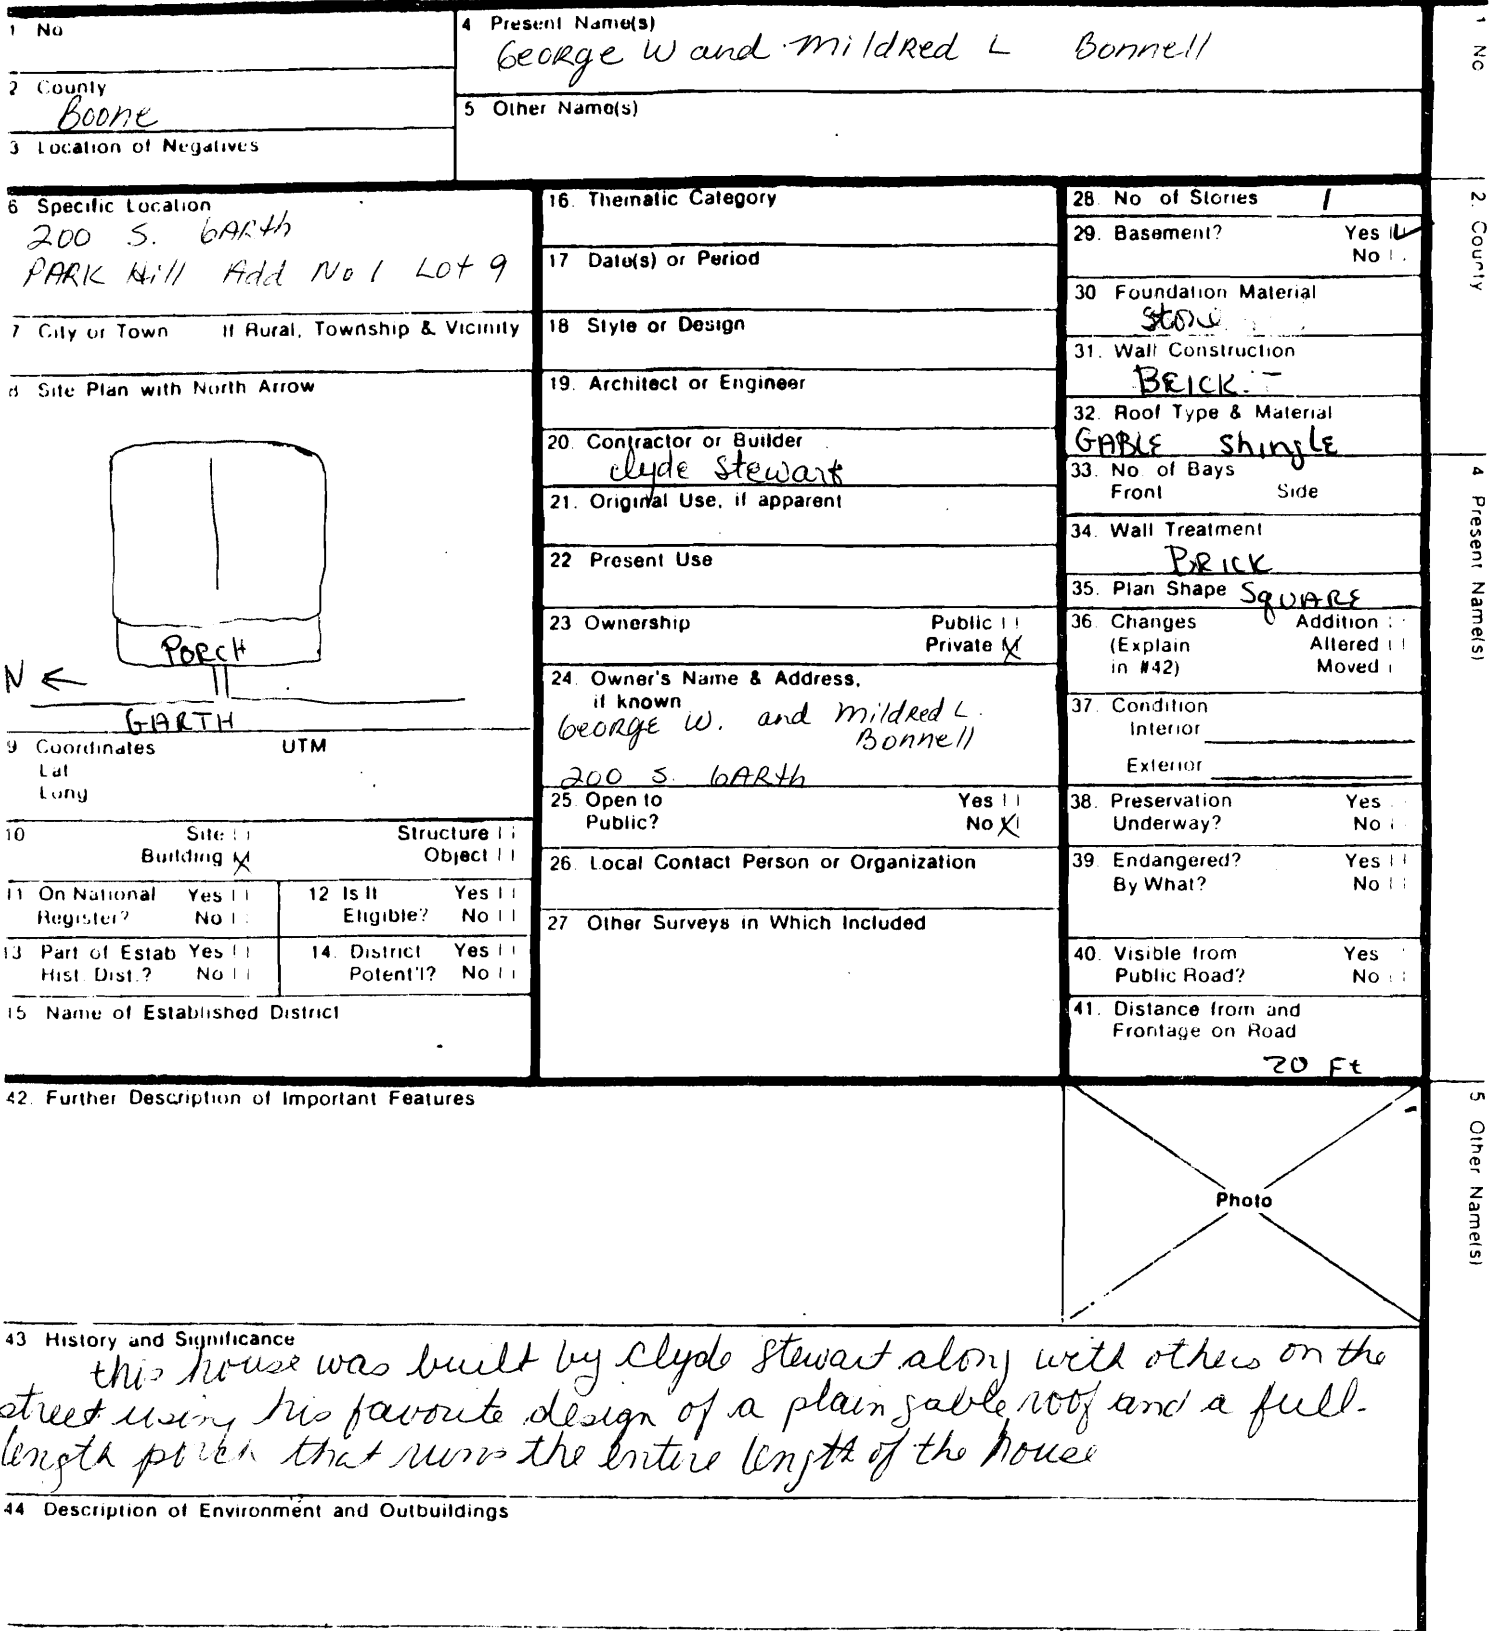 1 No
4 Present Name(s)
George W and Mildred L Bonnell
2 County
Boone
5 Other Name(s)
3 Location of Negatives
6 Specific Location
200 S. GARth
PARK Hill Add No 1 Lot 9
7 City or Town If Rural, Township & Vicinity
8 Site Plan with North Arrow
PORCH
N
GARTH
9 Coordinates UTM
Lat
Long
10 Site Structure
Building X Object
11 On National Yes
Register? No
12 Is It Yes
Eligible? No
13 Part of Estab Yes
Hist. Dist.? No
14. District Yes
Potent'l? No
15 Name of Established District
16. Thematic Category
17 Date(s) or Period
18 Style or Design
19. Architect or Engineer
20. Contractor or Builder
Clyde Stewart
21. Original Use, if apparent
22 Present Use
23 Ownership Public
Private X
24. Owner's Name & Address,
if known
George W. and Mildred L.
Bonnell
200 S. GARth
25. Open to Yes
Public? No X
26. Local Contact Person or Organization
27 Other Surveys in Which Included
28. No of Stories 1
29. Basement? Yes ✓
No
30 Foundation Material
Stone
31. Wall Construction
BRICK
32. Roof Type & Material
GABLE Shingle
33. No. of Bays
Front Side
34. Wall Treatment
BRICK
35. Plan Shape SQUARE
36. Changes Addition
(Explain Altered
in #42) Moved
37. Condition
Interior
Exterior
38. Preservation Yes
Underway? No
39. Endangered? Yes
By What? No
40. Visible from Yes
Public Road? No
41. Distance from and
Frontage on Road
20 Ft
42. Further Description of Important Features
Photo
43 History and Significance
this house was built by Clyde Stewart along with others on the
street using his favorite design of a plain gable roof and a full-
length porch that runs the entire length of the house
44 Description of Environment and Outbuildings
1 No
2. County
4 Present Name(s)
5 Other Name(s)